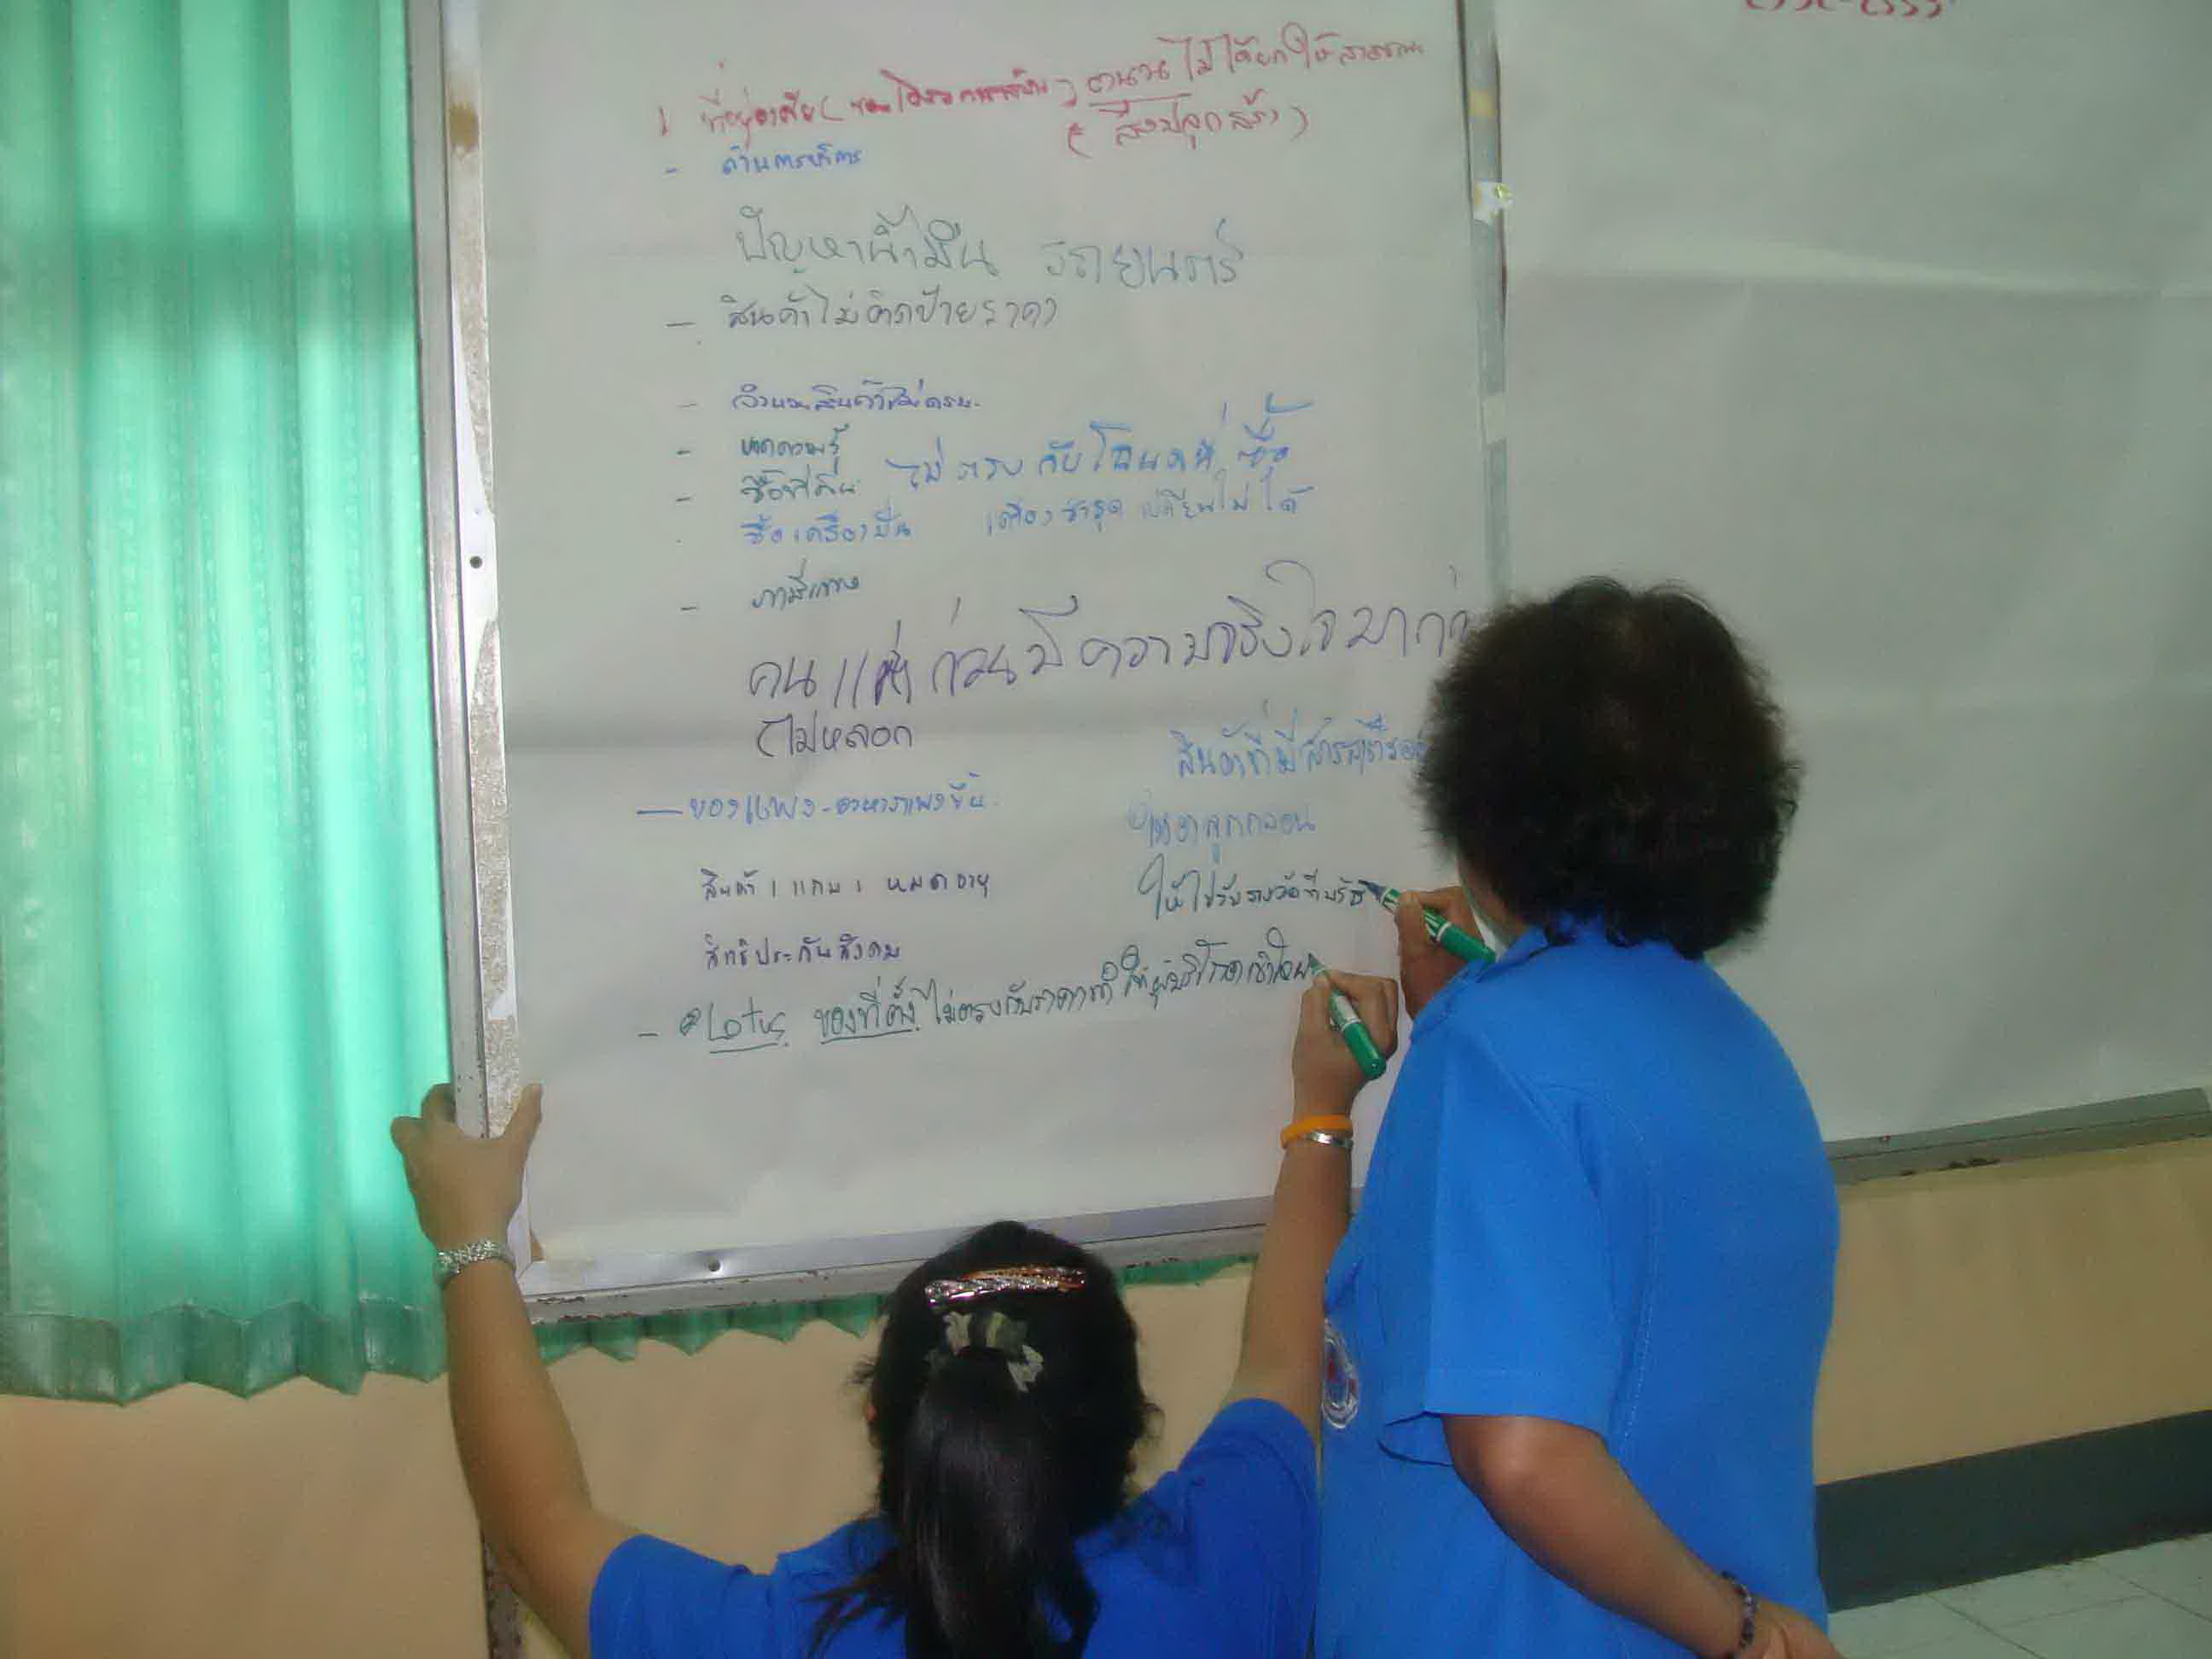 ที่อยู่อาศัย ( ) ถนน ไม่ได้ยกให้สาธารณะ
( สิ่งปลูกสร้าง )
- ด้านการบริการ
ปัญหาน้ำมัน รถยนตร์
- สินค้าไม่ติดป้ายราคา
- จำนวนสินค้าไม่ครบ
- ขาดความรู้
- ซื้อที่ดิน ไม่ตรงกับโฉนดที่ซื้อ
ซื้อเครื่องปั่น เครื่องชำรุด เปลี่ยนไม่ได้
- ภาษีแพง
คนแต่ก่อนมีความจริงใจมากก
(ไม่หลอก
สินค้าที่มี
- ของแพง - อาหารแพงขึ้น
สินค้า แถม หมดอายุ
ให้ไปรับรางวัลที่บริษ
สิทธิประกันสังคม
- Lotus ของที่ตั้งไม่ตรงกับราคา ทำให้ผู้บริโภคเข้าใจผ